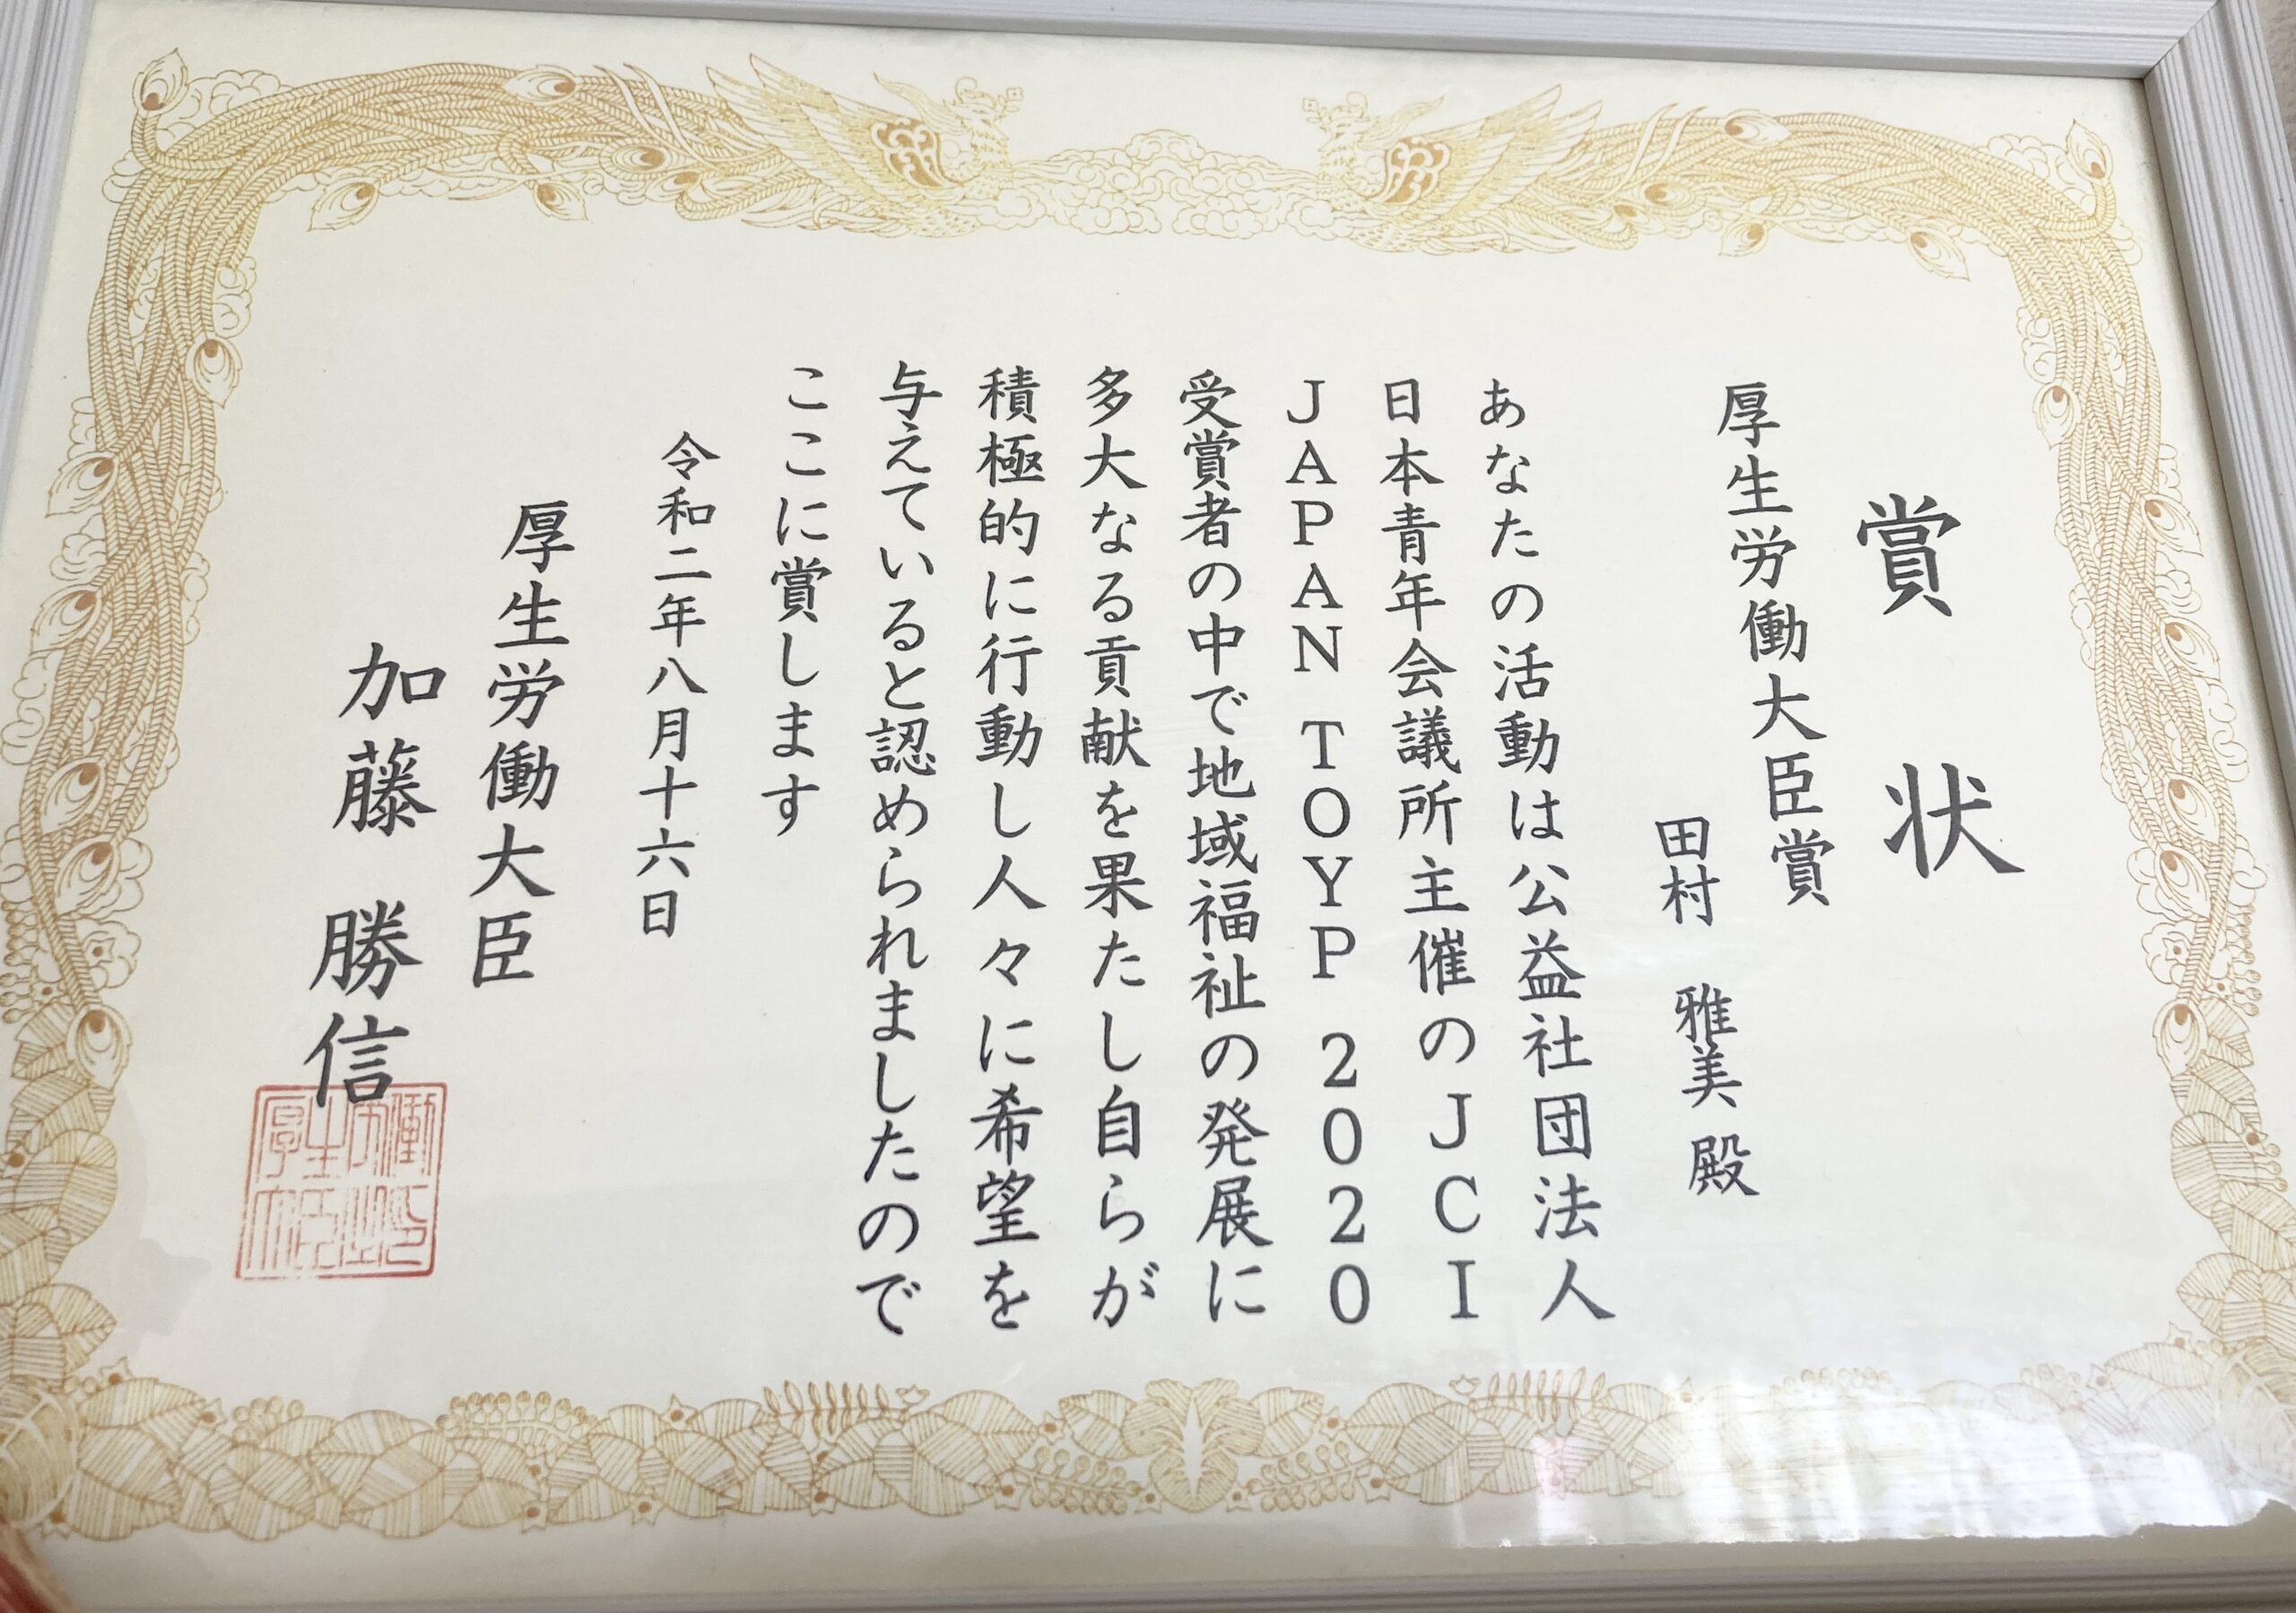 賞状
厚生労働大臣賞
田村 雅美 殿
あなたの活動は公益社団法人
日本青年会議所主催のJCI
JAPAN TOYP 2020
受賞者の中で地域福祉の発展に
多大なる貢献を果たし自らが
積極的に行動し人々に希望を
与えていると認められましたので
ここに賞します
令和二年八月十六日
厚生労働大臣
加藤 勝信